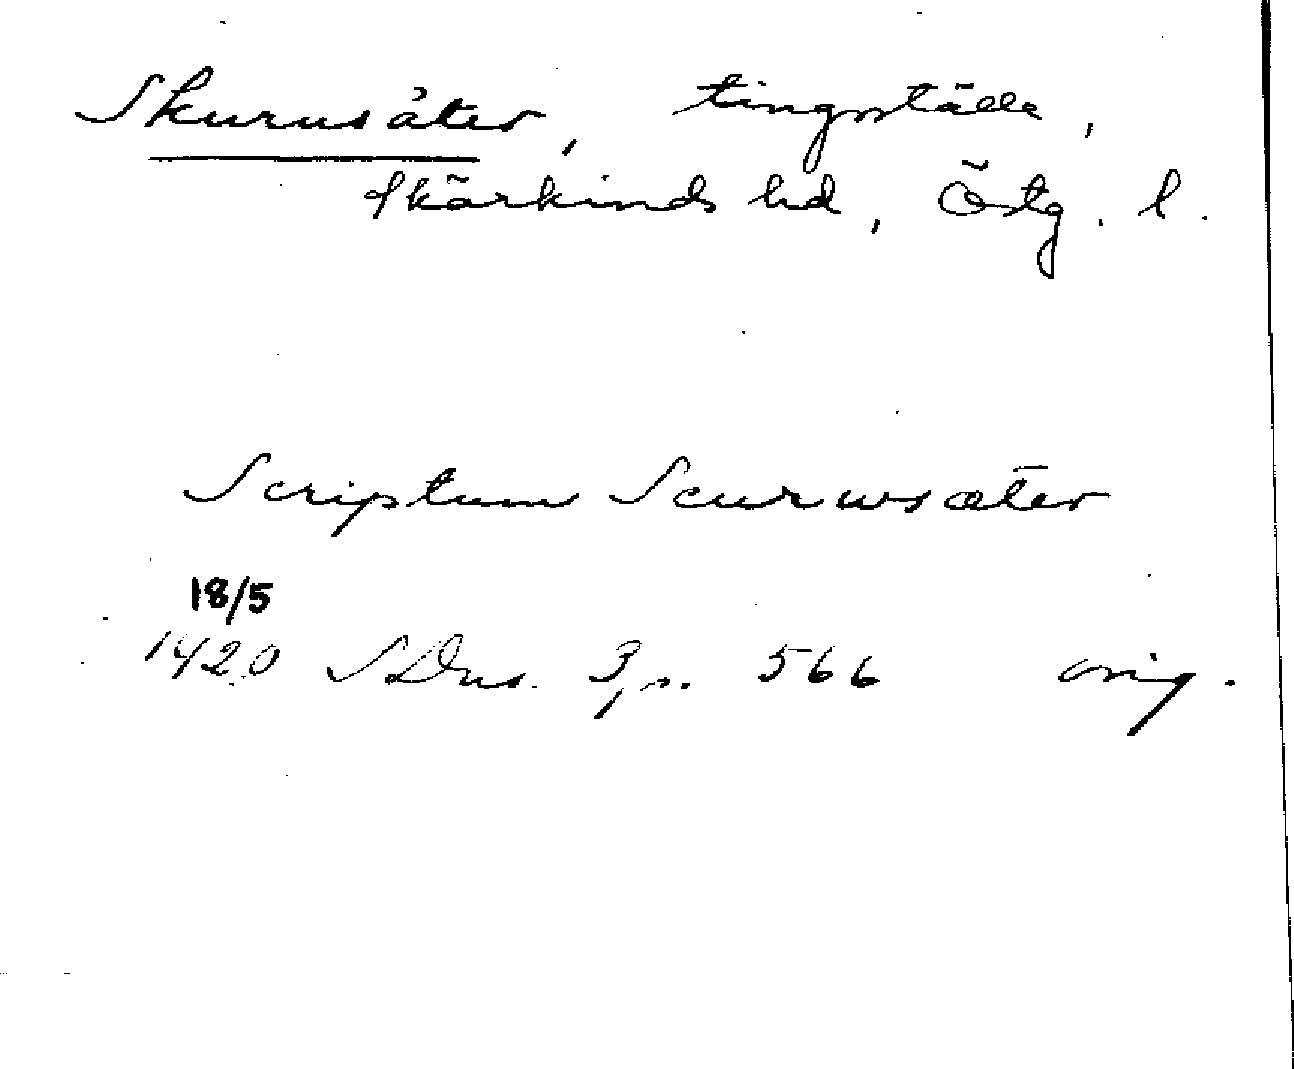 Skurusäter, tingsställe,
Skärkinds hd, Östg. l.
Scriptum Scurwsæter
18/5
1420 SDns. 3, s. 566 orig.